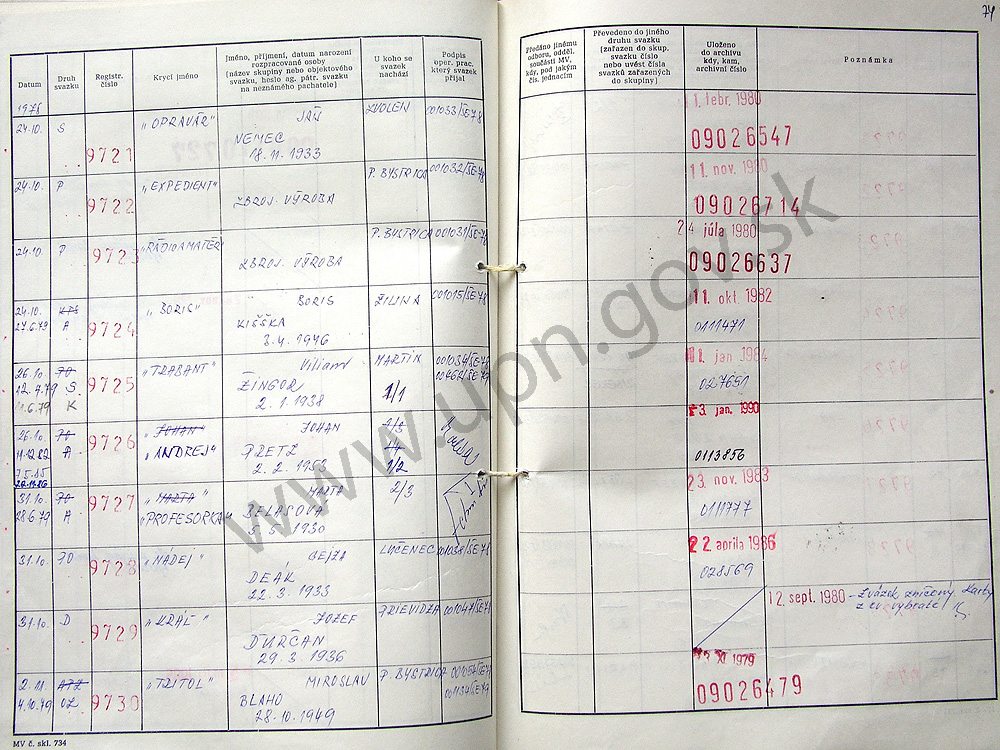 74
Datum
Druh svazku
Registr. číslo
Krycí jméno
Jméno, příjmení, datum narození
rozpracované osoby
(název skupiny nebo objektového
svazku, heslo ag. pátr. svazku
na neznámého pachatele)
U koho se
svazek
nachází
Podpis
oper. prac.
který svazek
přijal
Předáno jinému
odboru, odděl.
součásti MV,
kdy, pod jakým
čís. jednacím
Převedeno do jiného
druhu svazku
(zařazen do skup.
svazku číslo
nebo uvést čísla
svazků zařazených
do skupiny)
Uloženo
do archivu
kdy, kam,
archivní číslo
Poznámka
1978
24.10. S 9721 "OPRAVÁR" JÁN ZVOLEN 001033/SE-78
NEMEC
18.11.1933
1. febr. 1980
09026547
24.10. P 9722 "EXPEDIENT" P. BYSTRICA 001032/SE-78
ZBROJ. VÝROBA
11. nov. 1980
09026714
24.10. P 9723 "RÁDIOAMATÉR" P. BYSTRICA 001031/SE-78
ZBROJ. VÝROBA
24 júla 1980
09026637
24.10. KPS 9724 "BORIS" BORIS ŽILINA 001015/SE-78
27.6.79 A KIŠŠKA
3.4.1946
11. okt. 1982
0111471
26.10. TO 9725 "TRABANT" Viliam MARTIN 001034/SE-78
12.4.79 S ŽINGOR 1/1 00462/SE-79
11.6.79 K 2.1.1938
1. jan 1984
027651
26.10. TO 9726 "JOHAN" JOHAN
11.12.82 A "ANDREJ" PRETZ 1/2
2.2.1952
3. jan. 1990
0113856
31.10. TO 9727 "MARTA" MARTA 2/3
28.6.79 A "PROFESORKA" BELASOVÁ
23 nov. 1983
0111777
31.10. TO 9728 "NÁDEJ" GEJZA LUČENEC 001038/SE-78
DEÁK
22.3.1933
22 apríla 1986
028569
31.10. D 9729 "KRÁĽ" JOZEF PRIEVIDZA 001047/SE-78
ĎURČAN
29.3.1936
12. sept. 1980 - Zväzok zničený. Karty
z ev. vybraté
2.11. 9730 "TRITOL" MIROSLAV P. BYSTRICA
4.10.79 OZ BLAHO 001134/SE-79
28.10.1949
XI 1979
09026479
MV č. skl. 734
www.upn.gov.sk